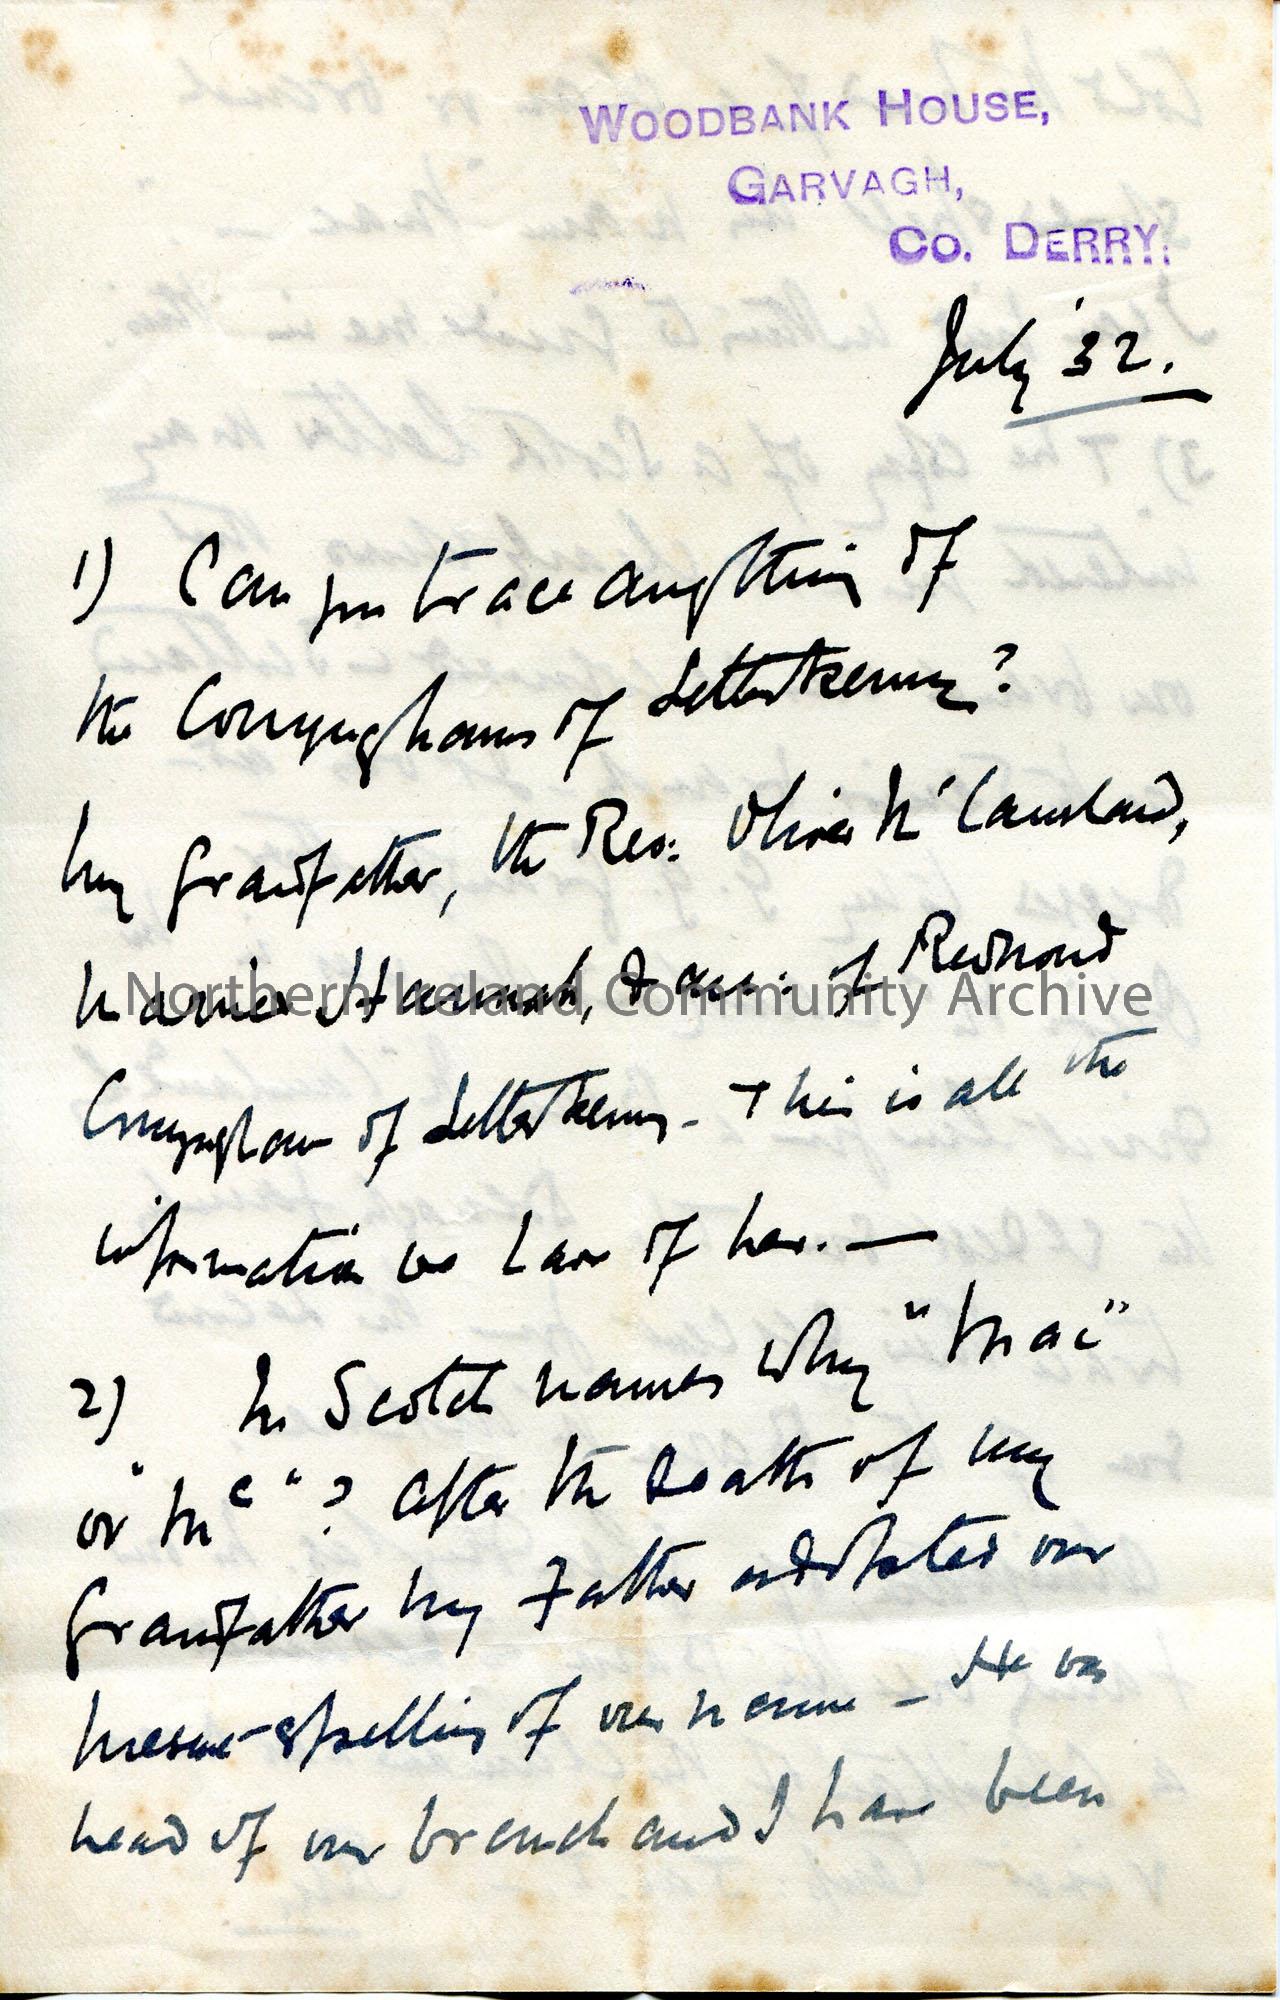 WOODBANK HOUSE,
GARVAGH,
CO. DERRY.
July '32.
1) Can you trace anything of
the Conynghams of Letterkenny?
My Grandfather, the Rev: Oliver M'Causland,
married Hannah, dau: of Redmond
Conyngham of Letterkenny - This is all the
information we have of her. —
2) In Scotch names why "Mac"
or "Mc"? After the death of my
Grandfather my Father adopted our
present spelling of our name - He was
head of our branch and I have been
Northern Ireland Community Archive